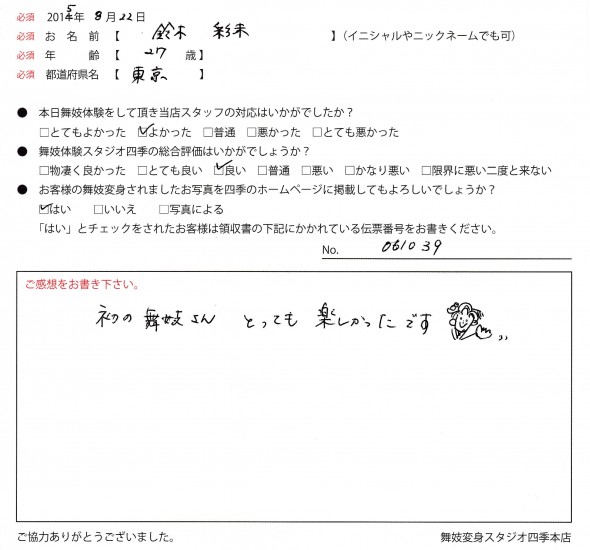 必須 2015年 8月 22日
必須 お名前【 鈴木 彩来 】(イニシャルやニックネームでも可)
必須 年齢【 27 歳】
必須 都道府県名【 東京 】
● 本日舞妓体験をして頂き当店スタッフの対応はいかがでしたか?
□とてもよかった ☑よかった □普通 □悪かった □とても悪かった
● 舞妓体験スタジオ四季の総合評価はいかがでしょうか?
□物凄く良かった □とても良い ☑良い □普通 □悪い □かなり悪い □限界に悪い二度と来ない
● お客様の舞妓変身されましたお写真を四季のホームページに掲載してもよろしいでしょうか?
☑はい □いいえ □写真による
「はい」とチェックをされたお客様は領収書の下記にかかれている伝票番号をお書きください。
No. 061039
ご感想をお書き下さい。
初の舞妓さん とっても楽しかったです
ご協力ありがとうございました。 舞妓変身スタジオ四季本店